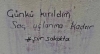 Günkü kırıldım
Saç uçlarıma kadar
#şiirsokakta